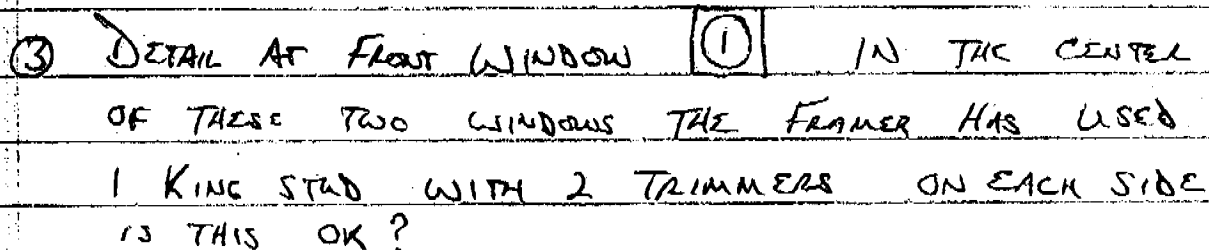 ③ DETAIL AT FRONT WINDOW ① IN THE CENTER
OF THESE TWO WINDOWS THE FRAMER HAS USED
1 KING STUD WITH 2 TRIMMERS ON EACH SIDE
IS THIS OK?